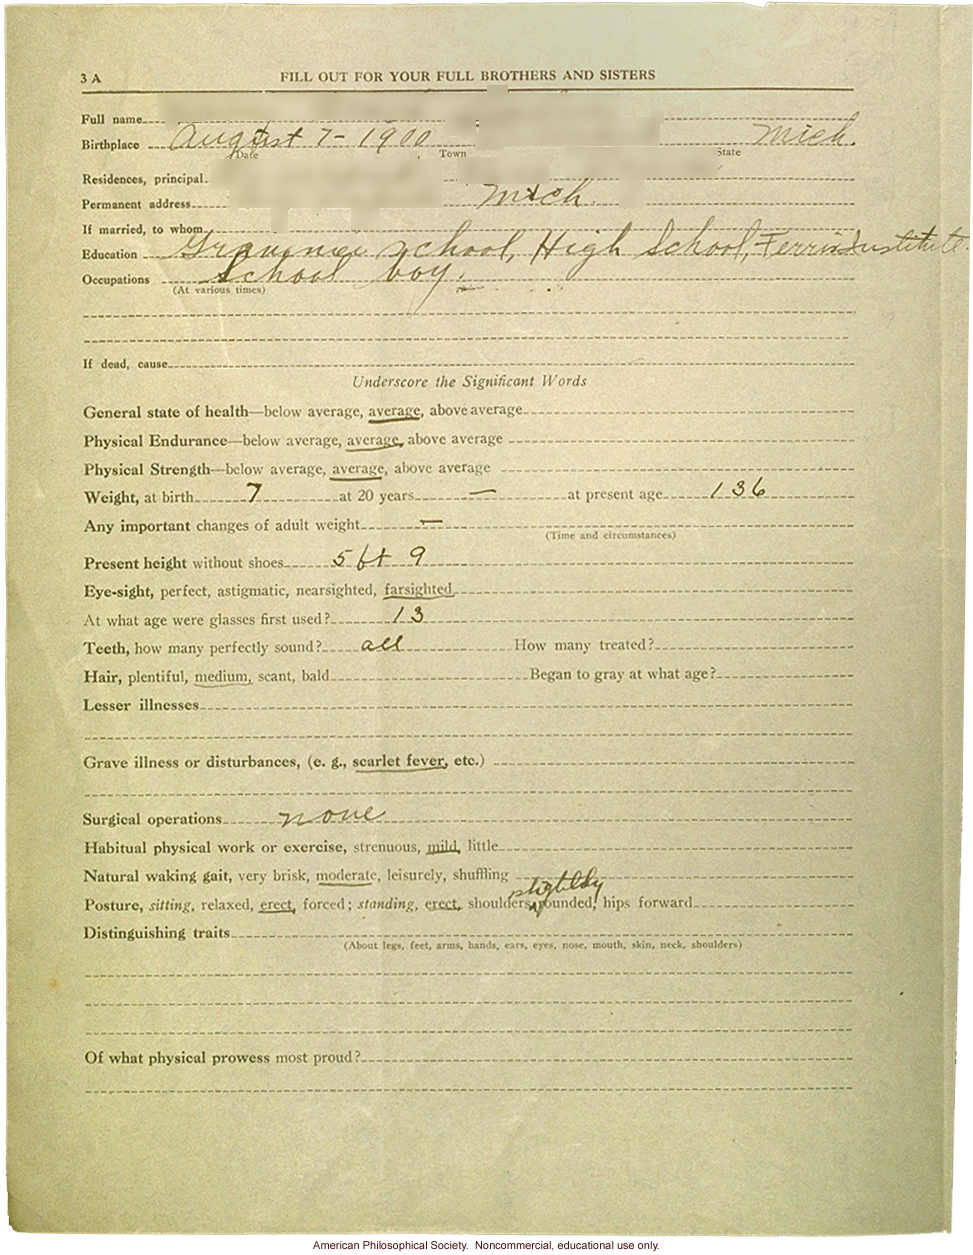 3 A FILL OUT FOR YOUR FULL BROTHERS AND SISTERS
Full name
Birthplace August 7 - 1900 Mich.
Date Town State
Residences, principal
Permanent address Mich.
If married, to whom
Education Grammer School, High School, Ferris Institute
Occupations School boy.
(At various times)
If dead, cause
Underscore the Significant Words
General state of health—below average, average, above average
Physical Endurance—below average, average, above average
Physical Strength—below average, average, above average
Weight, at birth 7 at 20 years — at present age 136
Any important changes of adult weight —
(Time and circumstances)
Present height without shoes 5 ft 9
Eye-sight, perfect, astigmatic, nearsighted, farsighted
At what age were glasses first used? 13
Teeth, how many perfectly sound? all How many treated?
Hair, plentiful, medium, scant, bald Began to gray at what age?
Lesser illnesses
Grave illness or disturbances, (e. g., scarlet fever, etc.)
Surgical operations none
Habitual physical work or exercise, strenuous, mild, little
Natural waking gait, very brisk, moderate, leisurely, shuffling
slightly
Posture, sitting, relaxed, erect, forced; standing, erect, shoulders rounded, hips forward
Distinguishing traits
(About legs, feet, arms, hands, ears, eyes, nose, mouth, skin, neck, shoulders)
Of what physical prowess most proud?
American Philosophical Society. Noncommercial, educational use only.